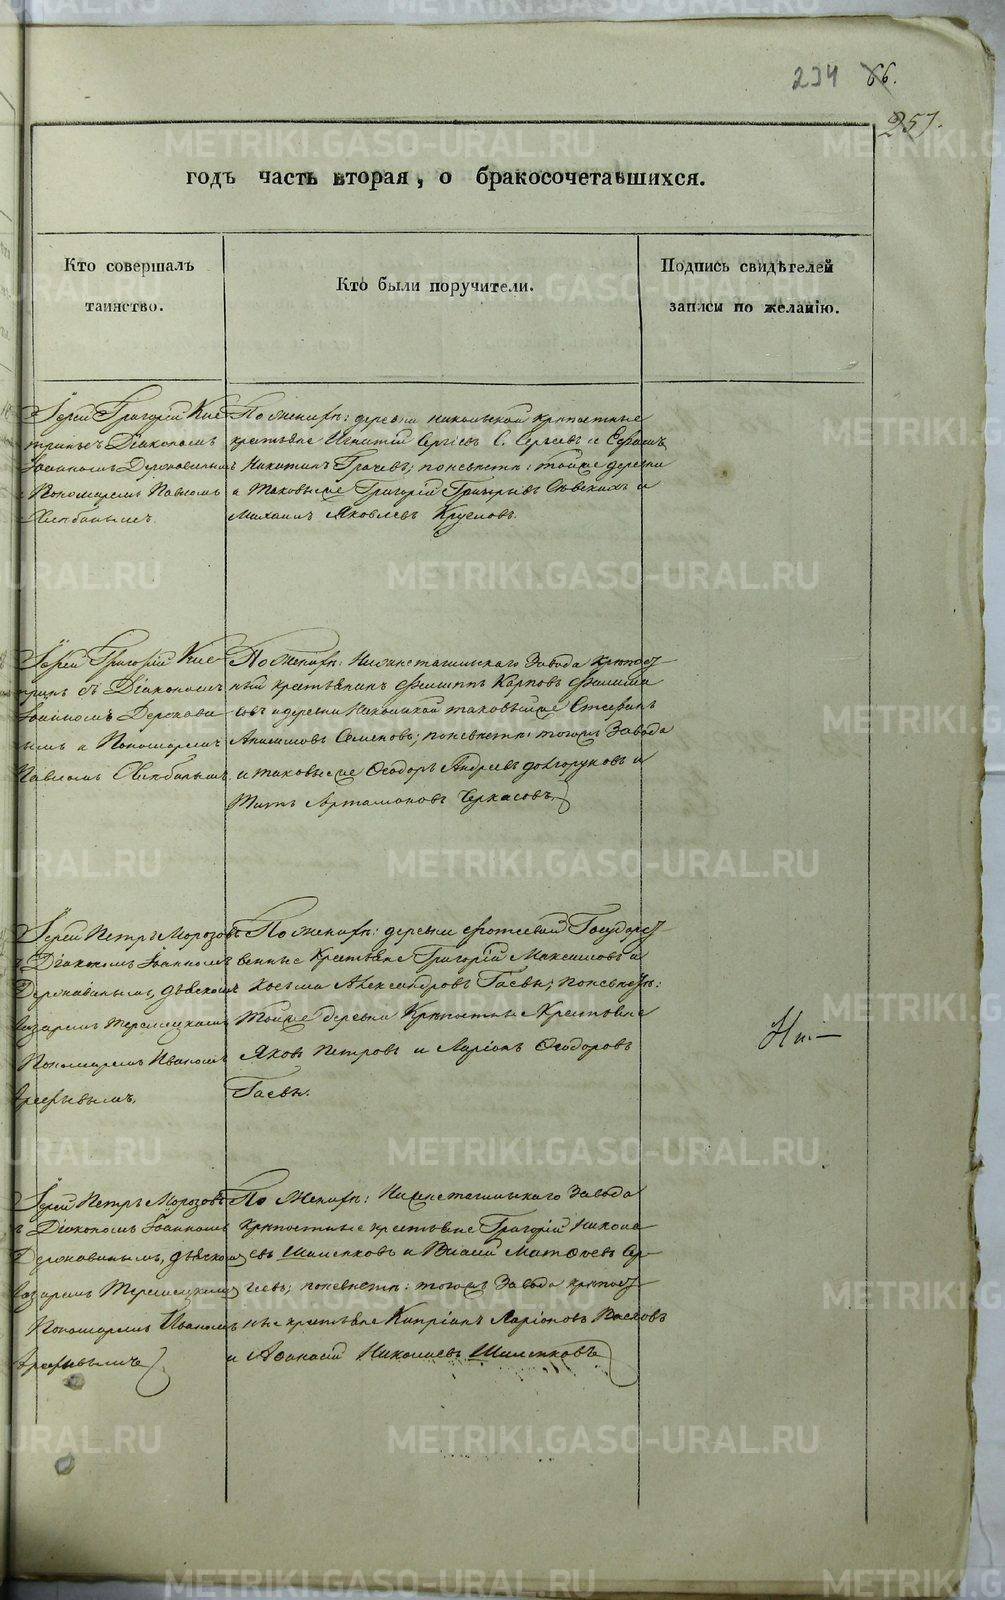 234 66.
257.
годъ часть вторая, о бракосочетавшихся.
Кто совершалъ
таинство.
Кто были поручители.
Подпись свидѣтелей
записи по желанію.
Іерей Григорій
Діакономъ
Іоанномъ Державинымъ
и Пономаремъ Павломъ
По женихѣ: деревни Никольской крѣпостные
крестьяне Игнатій Сергѣевъ и
Никитинъ Грачевъ; по невѣстѣ: тойже деревни
и таковыеже Григорій Григорьевъ и
Михаилъ Яковлевъ Кругловъ.
Іерей Григорій
съ Діакономъ
Іоанномъ Держави
нымъ и Пономаремъ
Павломъ
По женихѣ: Нижнетагильскаго Завода крѣпост
ный крестьянинъ Филиппъ Карповъ Филипп
овъ и деревни Никольской таковыйже Стефанъ
Анисимовъ Семеновъ; по невѣстѣ: тогожъ Завода
и таковыеже Ѳеодоръ Андреевъ Долгоруковъ и
Титъ Артамоновъ Черкасовъ.
Іерей Петръ Морозовъ
съ Діакономъ Іоанномъ
Державинымъ, дьячкомъ
Лазаремъ
Пономаремъ Иваномъ
Арефьевымъ.
По женихѣ: деревни Государст
венные Крестьяне Григорій Максимовъ и
Косьма Александровъ Гаевы; по невѣстѣ:
Тойже деревни Крѣпостные Крестьяне
Яковъ Петровъ и Ларіонъ Ѳеодоровъ
Гаевы.
Іерей Петръ Морозовъ
съ Діакономъ Іоанномъ
Державинымъ, дьячком
Лазаремъ
Пономаремъ Иваномъ
Арефьевымъ
По женихѣ: Нижнетагильскаго Завода
Крѣпостные крестьяне Григорій Никола
евъ Шиленковъ и Матѳеевъ Сер
гѣевъ; по невѣстѣ: тогожъ Завода крѣпост
ные крестьяне Кипріанъ Ларіоновъ
и Аѳанасій Николаевъ Шиленковъ
METRIKI.GASO-URAL.RU